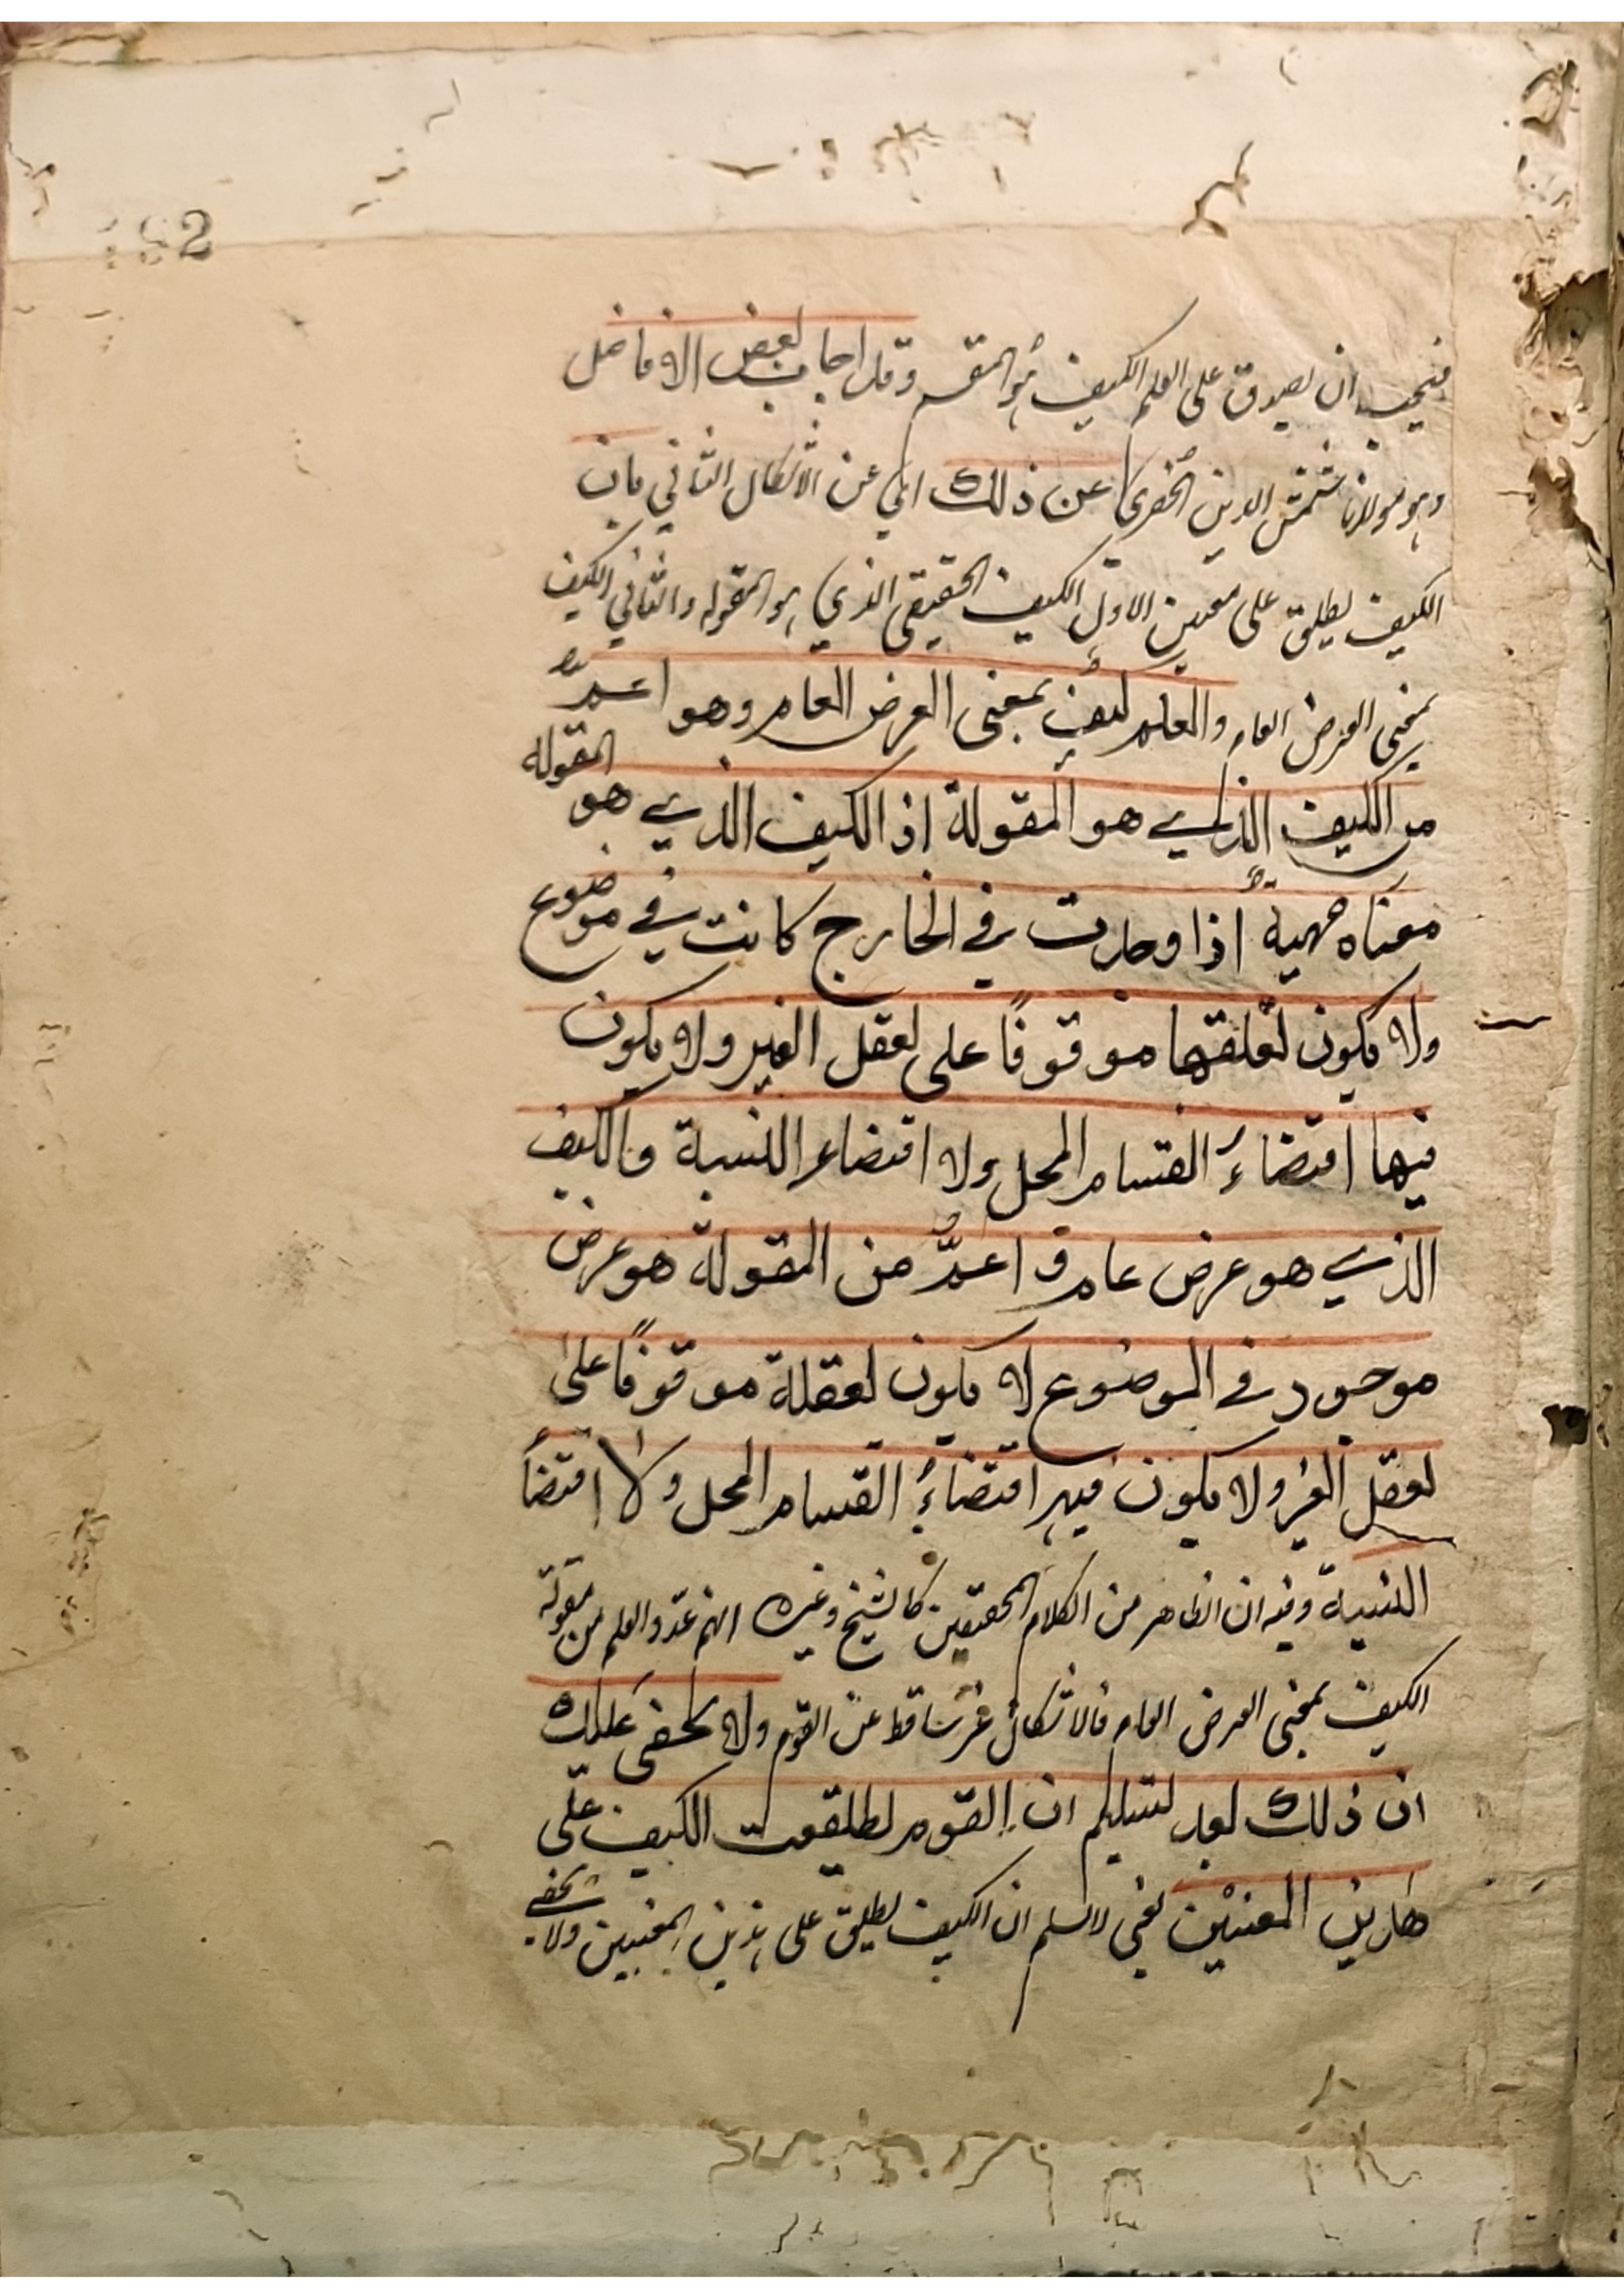 182
فيجب ان يصدق على العلم الكيف هو المقسم وقد اجاب بعض الافاضل
وهو مولانا شمس الدين الخفري عن ذلك اي عن الاشكال الثاني بان
الكيف يطلق على معنيين الاول الكيف الحقيقي الذي هو المقولة والثاني الكيف
بمعنى العرض العام والعلم كيف بمعنى العرض العام وهو اعمُّ
من الكيف الذي هو المقولة اذ الكيف الذي هو المقولة
معناه مهية اذا وجدت في الخارج كانت في موضوع
ولا يكون تعلقها موقوفًا على تعقل الغير ولا يكون
فيها اقتضاءُ القسام المحل ولا اقتضاء النسبة والكيف
الذي هو عرض عام و اعمُّ من المقولة هو عرض
موجود في الموضوع لا يكون تعقله موقوفًا على
تعقل الغير ولا يكون فيه اقتضاءُ القسام المحل ولا اقتضاً
النسبة وفيه ان الظاهر من الكلام المحققين كالشيخ وغيره انهم عدّوا العلم من مقولة
الكيف بمعنى العرض العام فالاشكال غير ساقط عن القوم ولا يخفى عليك
ان ذلك بعد تسليم ان القوم يطلقون الكيف على
هذين المعنيين يعني لا نسلم ان الكيف يطلق على هذين المعنيين ولا يخفى